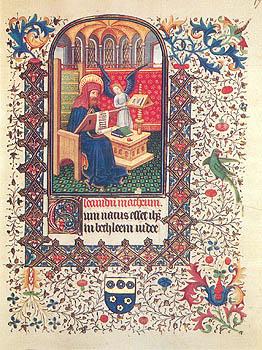 Secundum matheum.
Cum natus esset ihs
in bethleem iudee